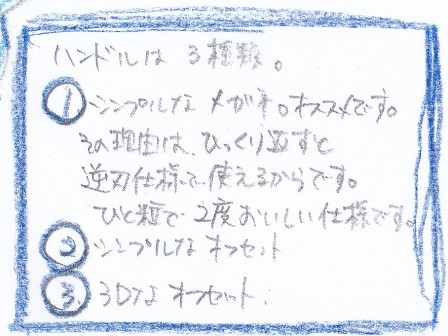 ハンドルは 3種類。
① シンプルな メガネ。オススメです。
その理由は、ひっくり返すと
逆刃仕様で使えるからです。
ひと粒で 2度おいしい仕様です。
② シンプルな オフセット
③ 3Dな オフセット.